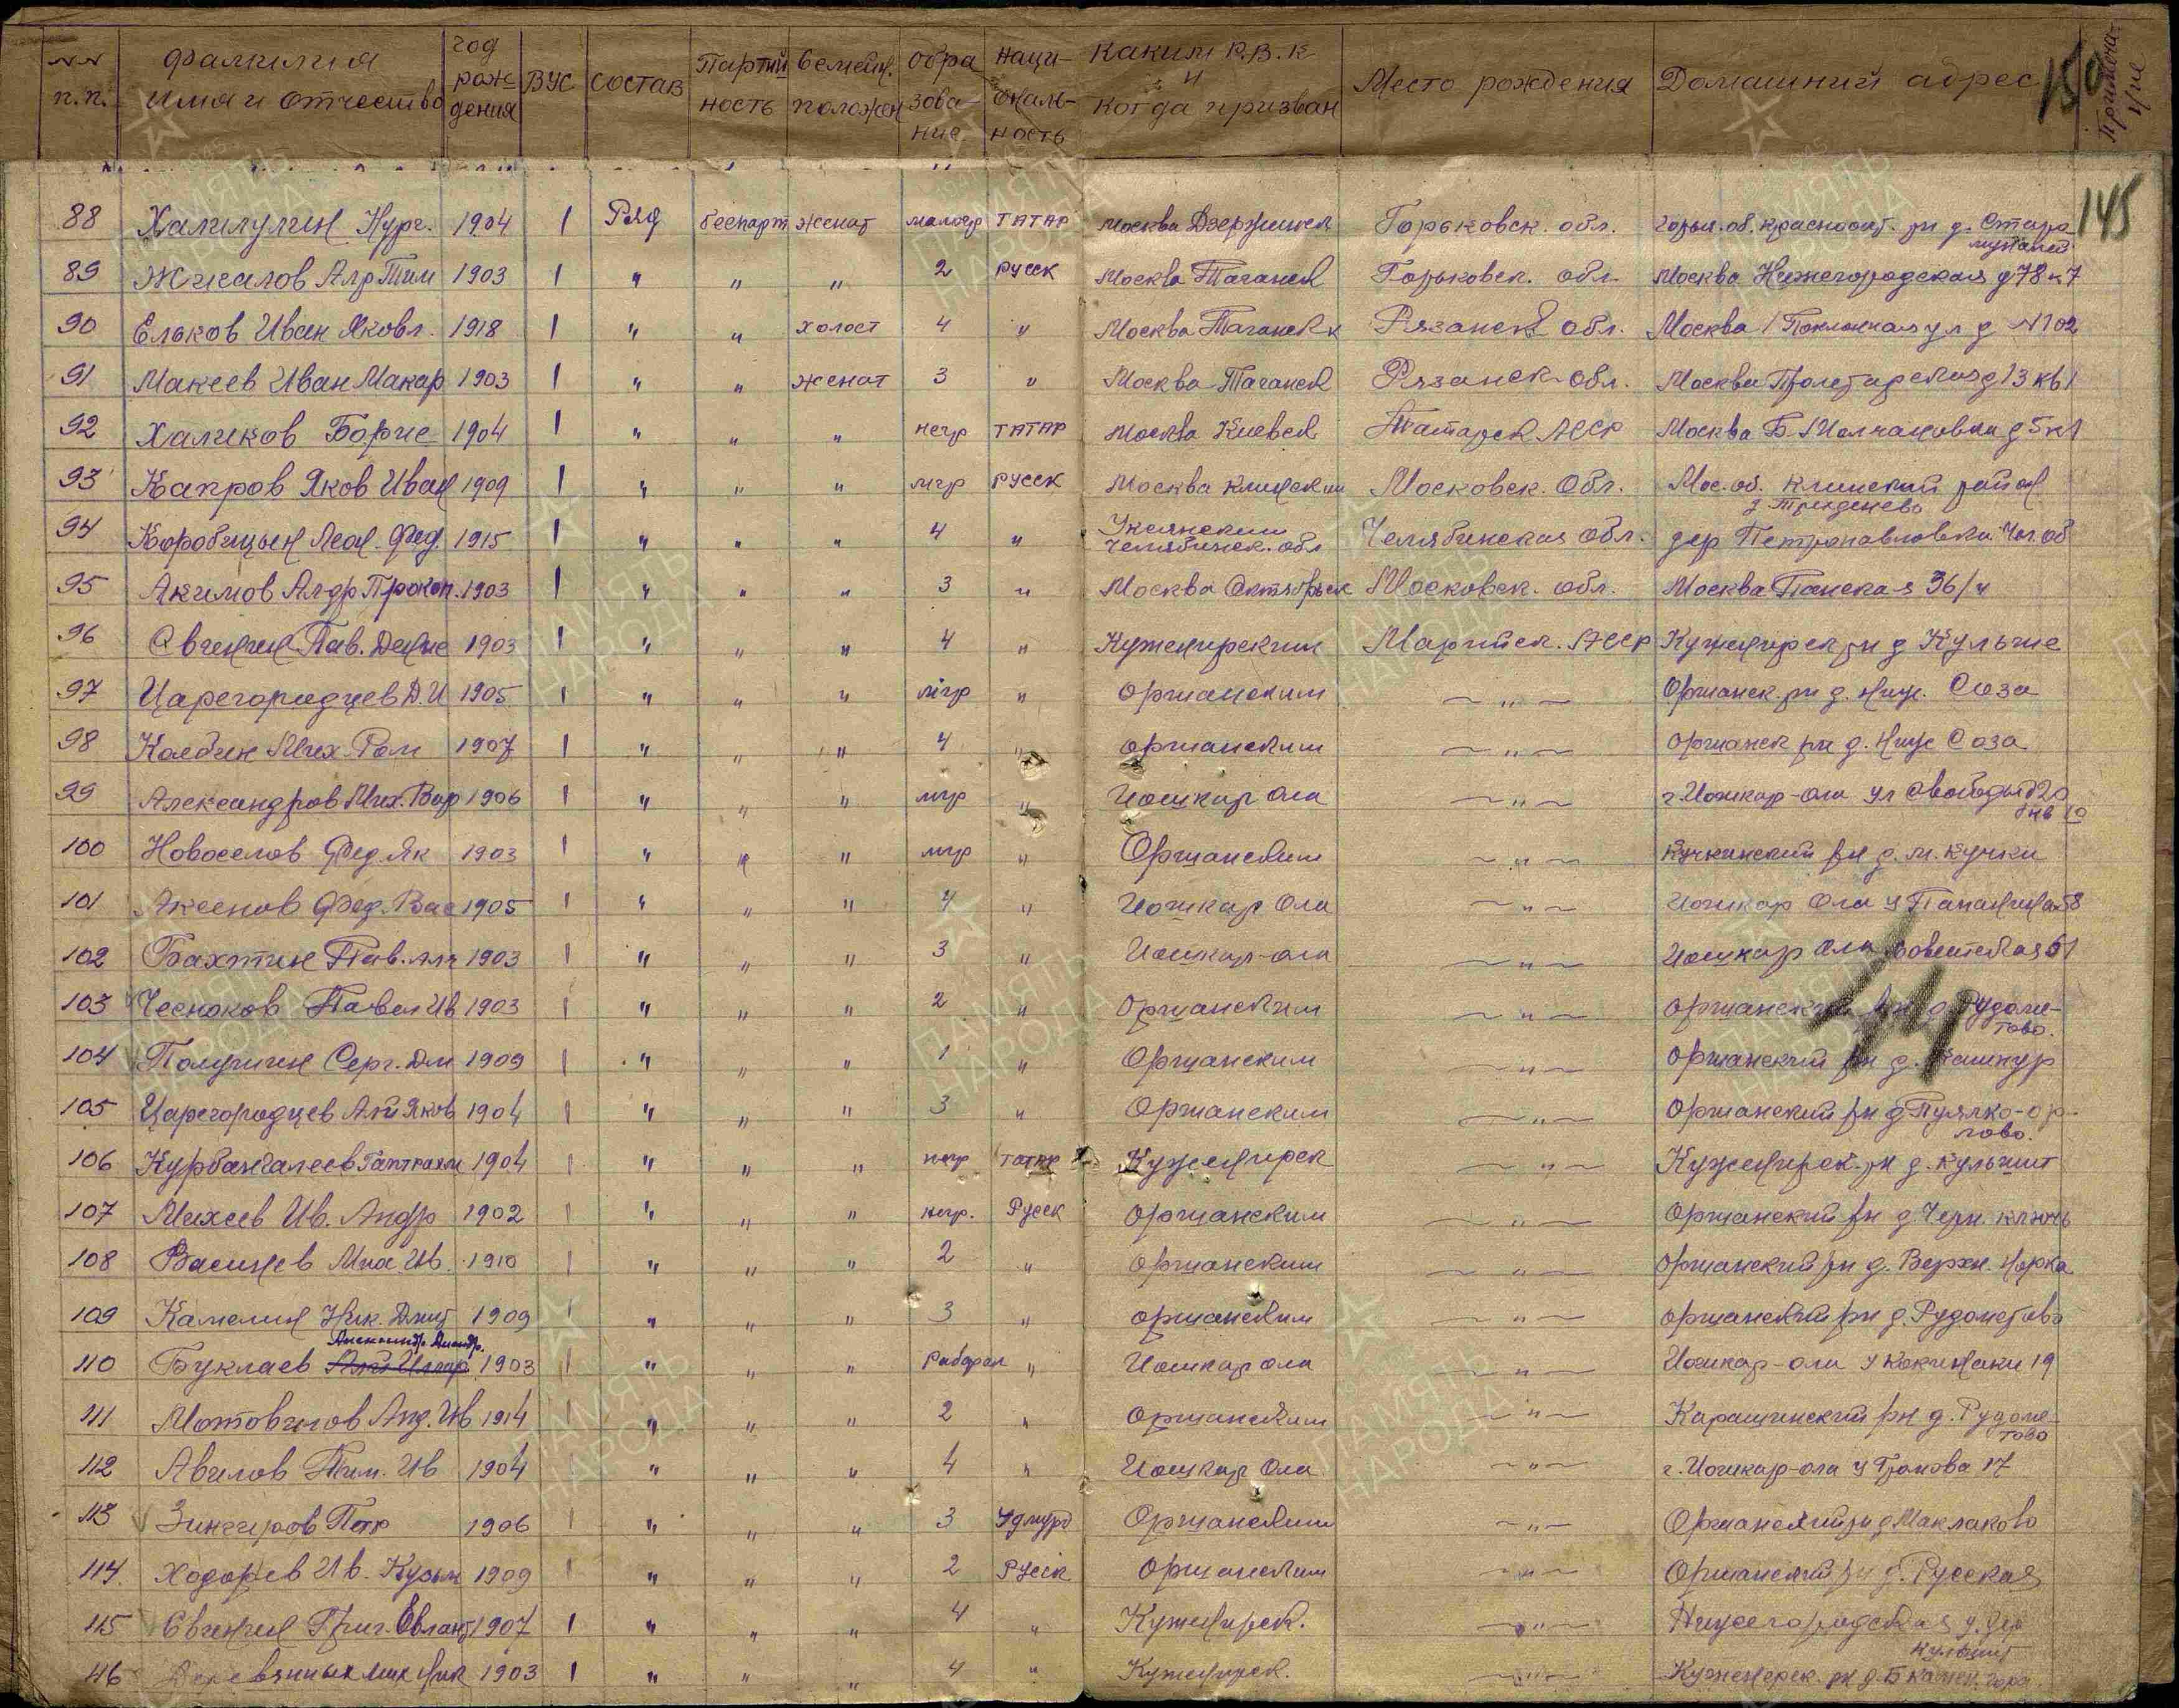 NN п.п. Фамилия имя и отчество год рождения ВУС состав Партийность Семейн. положен образование национальность Каким Р.В.К и когда призван Место рождения Домашний адрес Примечание
150
145
88 Халиулин Нург. 1904 1 Ряд беспарт женат малогр татар Москва Дзержинск Горьковск. обл. Горьк. об. Краснооит. рн д. Старо
89 Жигалов Алр Тим 1903 1 " " " 2 русск Москва Таганск Горьковск. обл. Москва Нижегородская д 78 к 7
90 Ельков Иван Яковл. 1918 1 " " холост 4 " Москва Таганск Рязанск обл. Москва Поклонная ул д N 102
91 Макеев Иван Макар 1903 1 " " женат 3 " Москва Таганск Рязанск обл. Москва Пролетарская д 13 кв 1
92 Халиков Борис 1904 1 " " " негр татар Москва Киевск Татарск АССР Москва Б. Молчановка д 5 к 1
93 Капров Яков Иван 1909 1 " " " мгр русск Москва Клинским Московск. Обл. Мос. об. Клинский район
94 Коробицын Леон. Фед. 1915 1 " " " 4 " Челябинск. обл Челябинская обл. дер Петропавловка Чел. об
95 Акимов Ал-др Прокоп. 1903 1 " " " 3 " Москва Октябрьск Московск. обл. Москва Панская 36/4
96 Свинин Пав. Денис 1903 1 " " " 4 " Куженирским Марийск. АССР Куженирск рн д Кульше
97 Царегородцев Д.И 1905 1 " " " мгр " Оршанским — " — Оршанск. рн д. Ниж. Соза
98 Колбин Мих. Ром 1907 1 " " " 4 " Оршанским — " — Оршанск рн д. Ниж Соза
99 Александров Мих. Вар 1906 1 " " " мгр " Йошкар Ола — " — г. Йошкар-ола ул Свободы д 20
кв 10
100 Новоселов Фед. Як 1903 1 " " " мгр " Оршанским — " — Кучкинский рн д. м. Кучки
101 Аксенов Фед. Вас 1905 1 " " " 4 " Йошкар Ола — " — Йошкар Ола у Панагина 58
102 Бахтин Пав. 1903 1 " " " 3 " Йошкар-ола — " — Йошкар Ола Советская 61
103 Чесноков Павел Ив 1903 1 " " " 2 " Оршанским — " — Оршанский рн д. Рудоме-
тово.
144
104 Полушин Серг. Дм 1909 1 " " " 1 " Оршанским — " — Оршанский рн д. Кашнур
105 Царегородцев Ал Яков 1904 1 " " " 3 " Оршанским — " — Оршанский рн д Пуялко-ор-
лово.
106 Курбангалеев Гаптрахм 1904 1 " " " негр татар Куженирск — " — Куженирск. рн д. Кульшит
107 Михеев Ив. Андр 1902 1 " " " негр. Русск Оршанским — " — Оршанский рн д. Черн. ключь
108 Васенев Мих. Ив. 1910 1 " " " 2 " Оршанским — " — Оршанский рн д. Верхн. Норка
109 Камелин Ник. Дмит 1909 1 " " " 3 " Оршанским — " — Оршанский рн д. Рудометово
110 Буклаев Александр. 1903 1 " " " Рабфак " Йошкар ола — " — Йошкар-ола у Кокинаки 19
111 Мотовилов Анд. Ив 1914 1 " " " 2 " Оршанским — " — рн д. Рудоме-
тово
112 Авилов Тим. Ив 1904 1 " " " 4 " Йошкар Ола — " — г. Йошкар-ола у Громова 17
113 Зингиров Петр 1906 1 " " " 3 Удмурд Оршанским — " — Оршанский рн д Маклаково
114 Ходырев Ив. Кузьм 1909 1 " " " 2 Русск Оршанским — " — Оршанский рн д. Русская
115 Свинин Григ. Евлант 1907 1 " " " 4 " Куженирск. — " — Нижегородская у. дер
Кульшит
116 Деревянных Мих Ник 1903 1 " " " 4 " Куженирск. — " — Куженерск. рн д. Б Камен. гора
ПАМЯТЬ НАРОДА